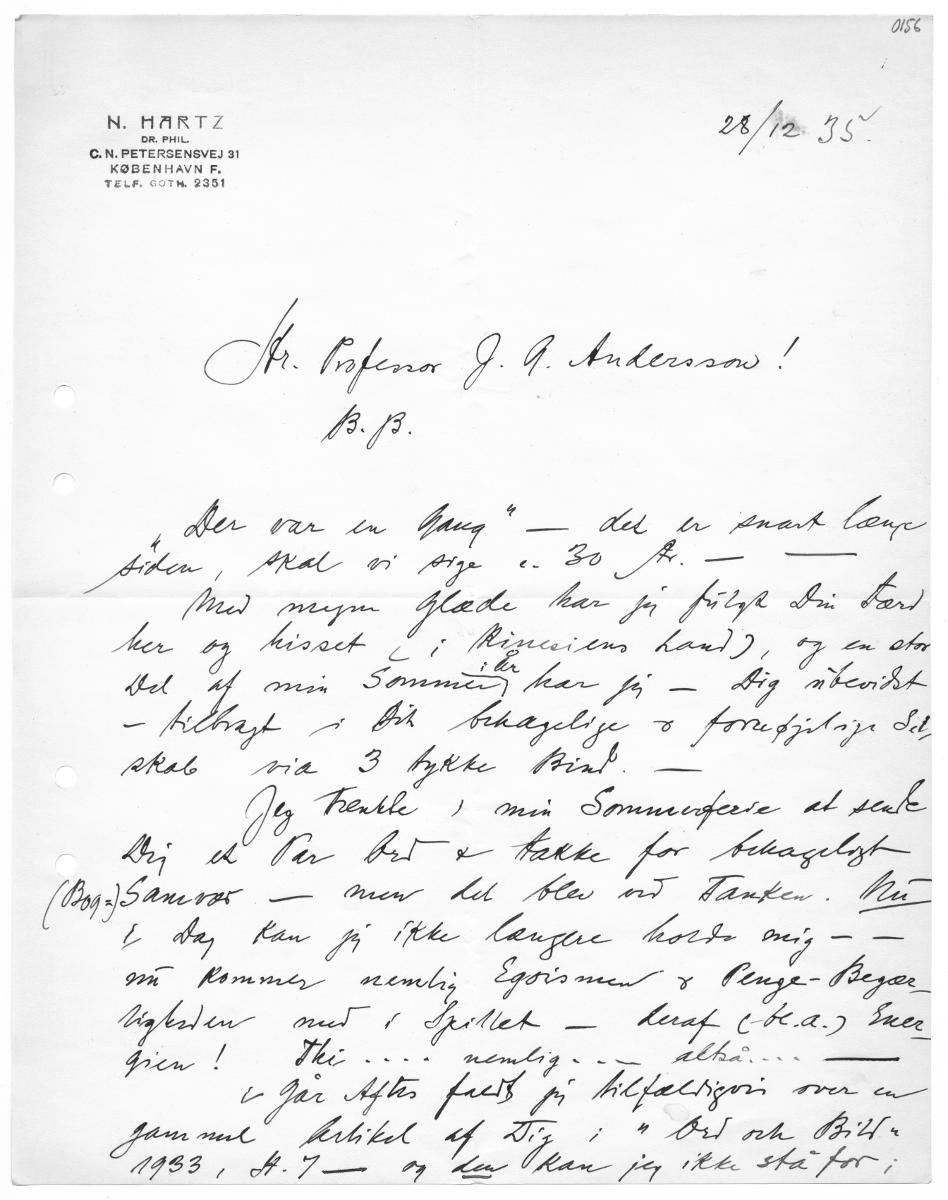 0156
N. HARTZ
DR. PHIL.
C. N. PETERSENSVEJ 31
KØBENHAVN F.
TELF. GOTH. 2351
28/12 35.
Hr. Professor J. G. Andersson!
B. B.
"Der var en Gang" — det er snart længe
siden, skal vi sige c. 30 År. — —
Med megen Glæde har jeg fulgt Din Færd
her og hisset (i Kinesiens Land), og en stor
Del af min Sommer har jeg — Dig ubevidst
i År
— tilbragt i Dit behagelige & fornøjelige Sel-
skab via 3 tykke Bind. —
Jeg tænkte i min Sommerferie at sende
Dig et Par Ord & takke for behageligt
(Bog=) Samvær — men det blev ved Tanken. Nu
i Dag kan jeg ikke længere holde mig — —
nu kommer nemlig Egoismen & Penge-Begær-
ligheden med i Spillet — deraf (bl.a.) Ener-
gien! Thi .... nemlig.... altså.... —
i Går Aftes faldt jeg tilfældigvis over en
gammel Artikel af Dig i "Ord och Bild"
1933, H. 7 — og den kan jeg ikke stå for;